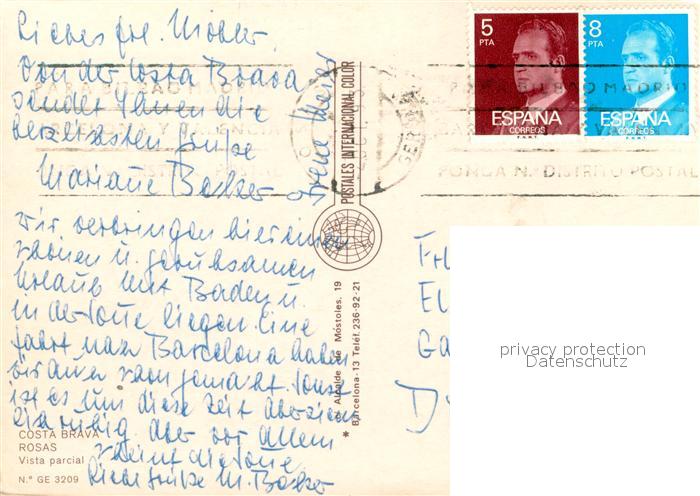 Liebes Frl. Mohler,
Von der Costa Brava
sendet Ihnen die
herzlichsten Grüße
Mariane Becker
Irene Meier
wir verbringen hier einen
schönen u. geruhsamen
Urlaub mit Baden u.
in der Sonne liegen. Eine
Fahrt nach Barcelona haben
wir auch schon gemacht. Sonst
ist es um diese Zeit aber ziem
lich ruhig. Aber vor allem
scheint die Sonne
Liebe Grüße M. Becker
COSTA BRAVA
ROSAS
Vista parcial
N.° GE 3209
POSTALES INTERNACIONAL COLOR
Alcalde de Móstoles, 19
* Barcelona-13 Teléf. 236-92-21
5
PTA
ESPAÑA
CORREOS
F.N.M.T.
8
PTA
ESPAÑA
CORREOS
F.N.M.T.
PARA BILBAO MADRID
PONGA N.° DISTRITO POSTAL
Frl.
D
privacy protection
Datenschutz